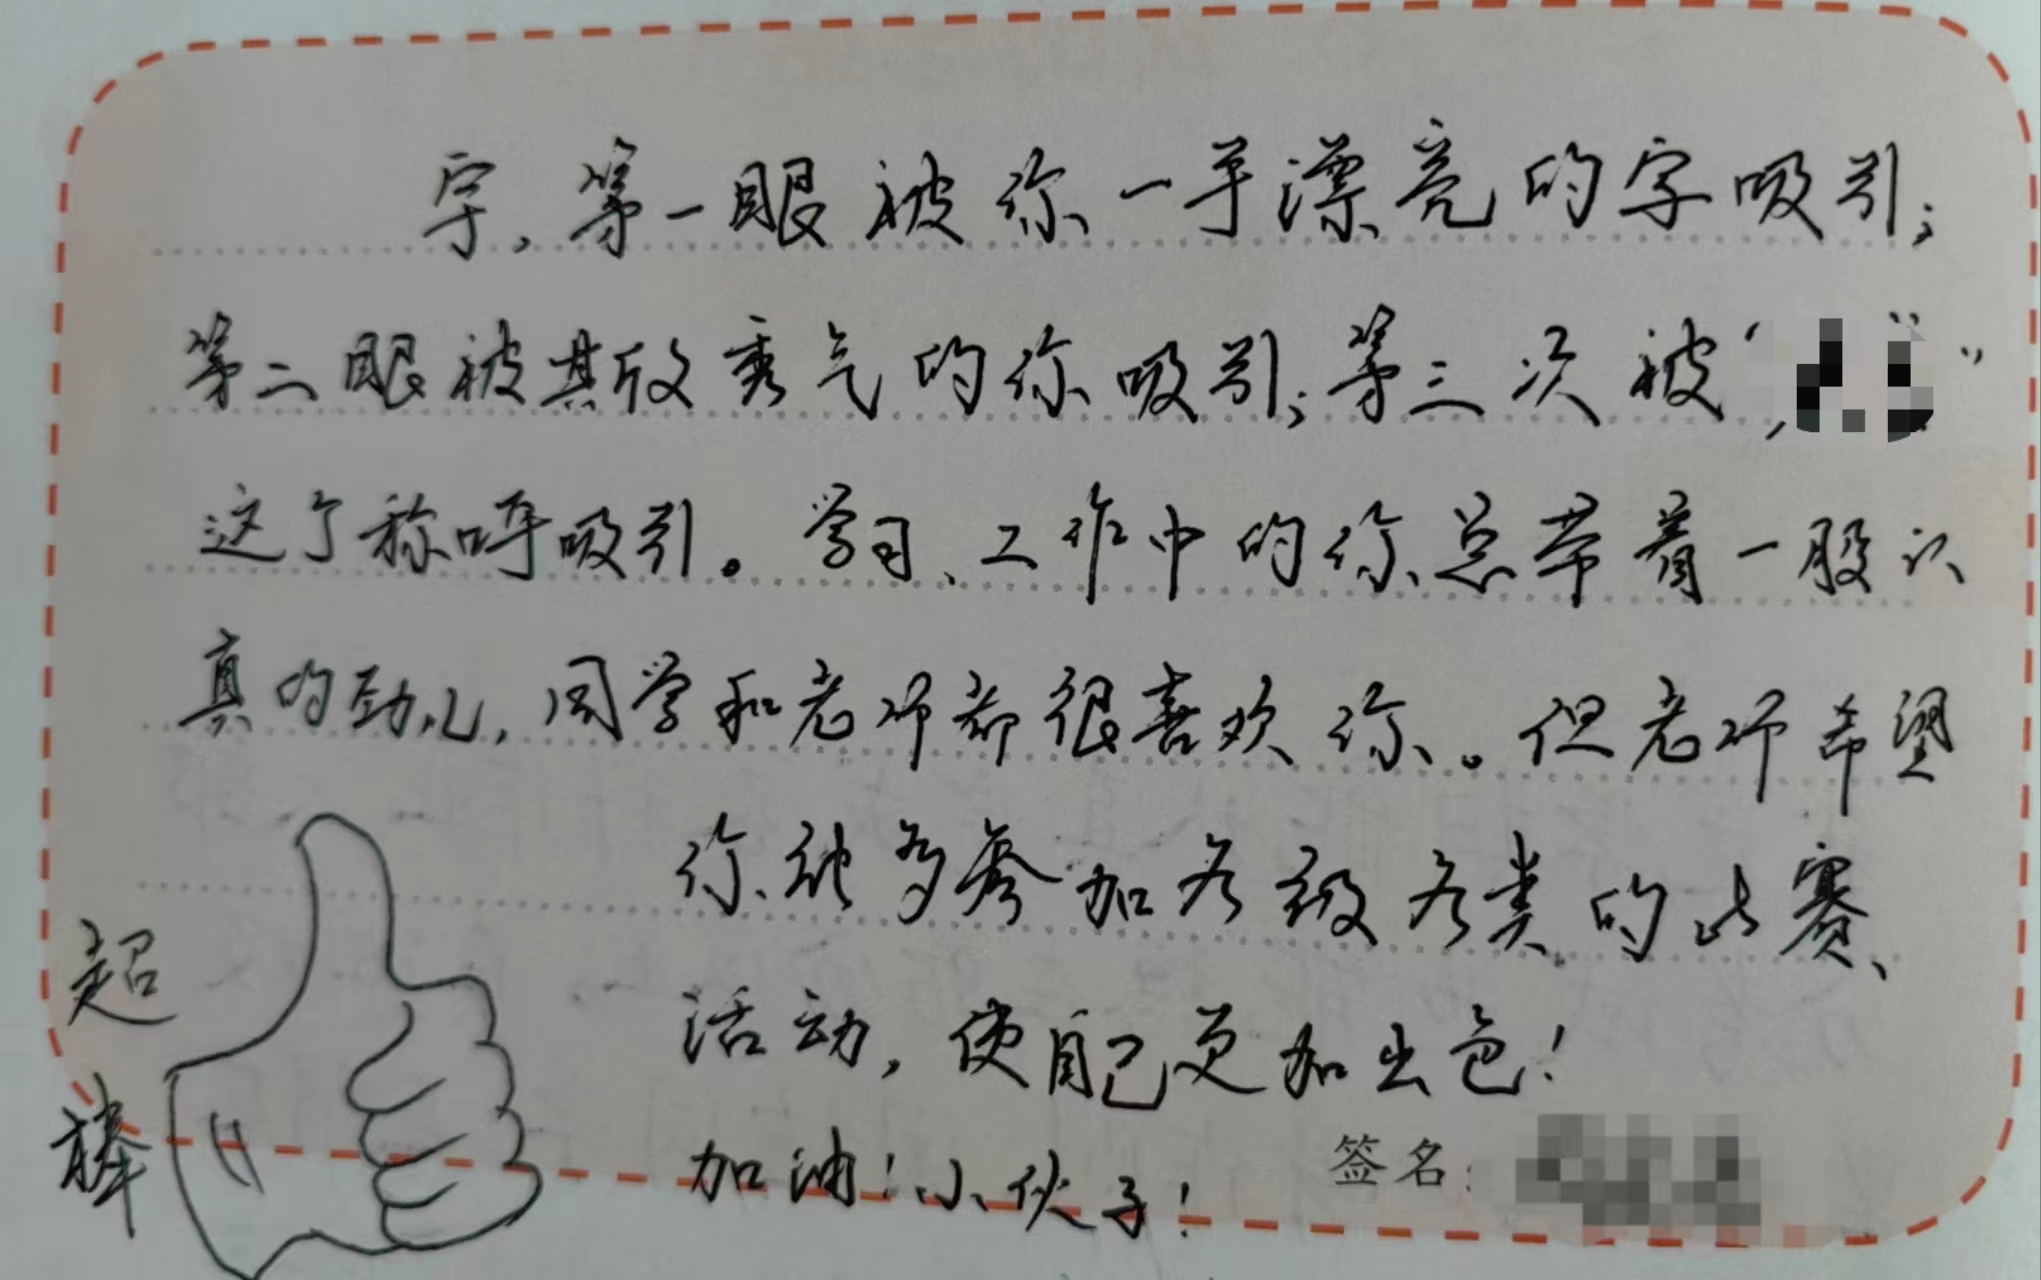 字,第一眼被你一手漂亮的字吸引;
第二眼被其斯秀气的你吸引;第三次被“ ”
这个称呼吸引。学习、工作中的你总带着一股认
真的劲儿,同学和老师都很喜欢你。但老师希望
你能多参加各级各类的比赛、
活动,使自己更加出色!
加油!小伙子!
签名:
超
棒